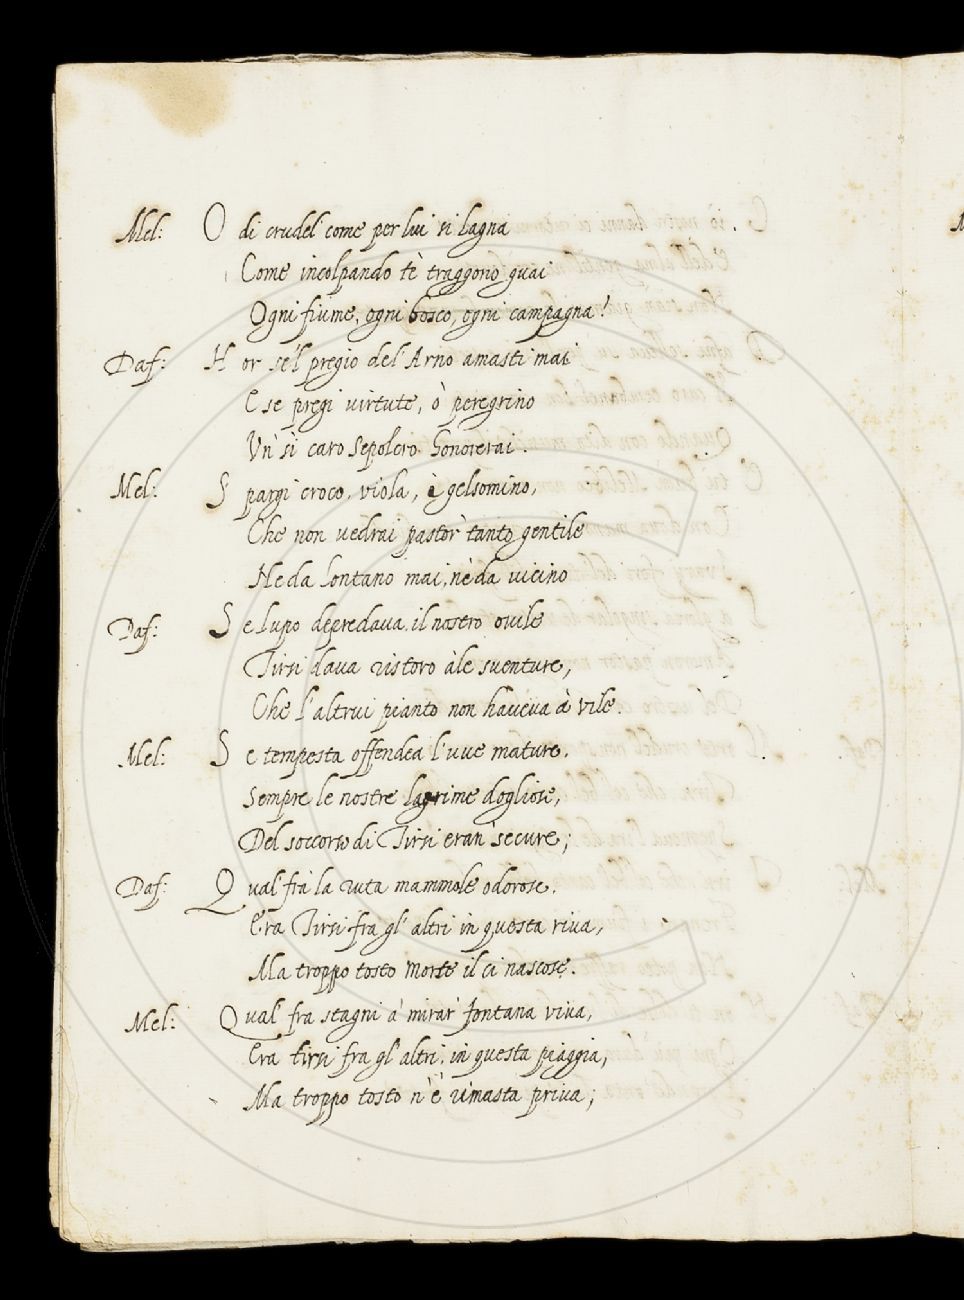 Mel: O di crudel come per lui si lagna
Come incolpando tè traggono guai
Ogni fiume, ogni bosco, ogni campagna!
Daf: H or se'l pregio del'Arno amasti mai
E se pregi virtute, ò peregrino
Un' sì caro sepolcro honorerai.
Mel: S pargi croco, viola, è gelsomino,
Che non vedrai pastor' tanto gentile
Ne da lontano mai, nè da vicino
Daf: S e lupo depredava il nostro ovile
Tirsi dava ristoro àle sventure,
Che l'altrui pianto non haveva à vile.
Mel: S e tempesta offendea l'uve mature,
Sempre le nostre lagrime dogliose,
Del soccorso di Tirsi eran' secure;
Daf: Q ual' frà la ruta mammole odorose,
Era Tirsi fra gl'altri in questa riva,
Ma troppo tosto morte il ci nascose.
Mel: Q ual' fra stagni à mirar' fontana viva,
Era tirsi fra gl'altri, in questa piaggia,
Ma troppo tosto n'è rimasta priva;